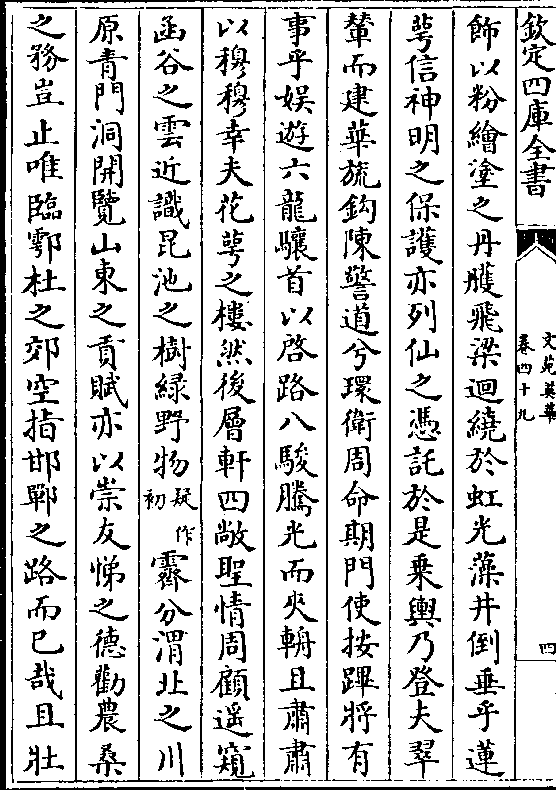 欽定四庫全書
文苑英華
卷四十九
四
飾以粉繪塗之丹雘飛梁迴繞於虹光藻井倒垂乎蓮
萼信神明之保護亦列仙之憑託於是乗輿乃登夫翠
輦而建華旒鈎陳警道兮環衛周命期門使按蹕將有
事乎娯遊六龍驤首以啓路八駿騰光而夾輈且肅肅
以穆穆幸夫花萼之樓然後層軒四敞聖情周顧遥窺
函谷之雲近識昆池之樹緑野物疑作初霽分渭北之川
原青門洞開覽山東之貢賦亦以崇友悌之德勸農桑
之務豈止唯臨鄠杜之郊空指邯鄲之路而已哉且壯